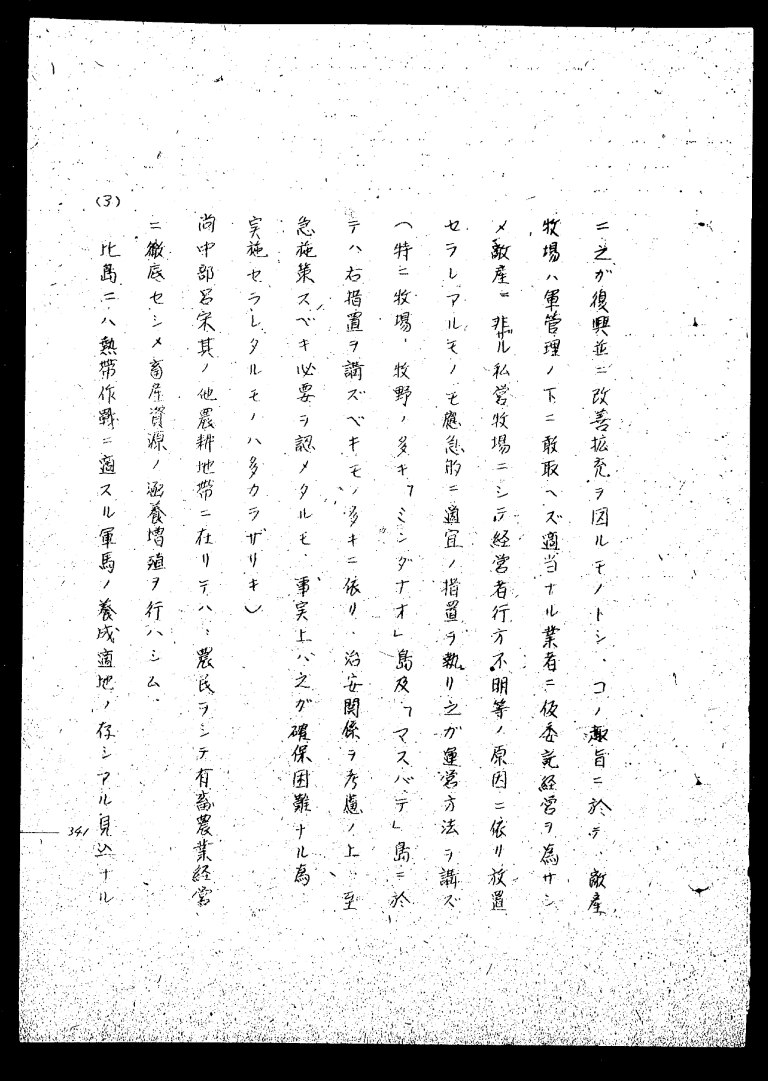 ニ之が復興並ニ改善拡充ヲ図ルモノトシ、コノ趣旨ニ於テ敵産
牧場ハ軍管理ノ下ニ敢取ヘズ適当ナル業者ニ仮委託経営ヲ為サシ
メ敵産ニ非ル私営牧場ニシテ経営者行方不明等ノ原因ニ依リ放置
セラレアルモノモ應急的ニ適宜ノ措置ヲ執リ之ガ運営方法ヲ講ズ
(特ニ牧場、牧野ノ多キ「ミンダナオ」島及「マスバテ」島ニ於
テハ右措置ヲ講ズベキモノ多キニ依リ、治安関係ヲ考慮ノ上、至
急施策スベキ必要ヲ認メタルモ、事実上ハ之ガ確保困難ナル為
実施セラレタルモノハ多カラザリキ)
尚中部呂宋其ノ他農耕地帯ニ在リテハ、農民ヲシテ有畜農業経営
ニ徹底セシメ畜産資源ノ涵養増殖ヲ行ハシム、
(3)
比島ニハ熱帯作戦ニ適スル軍馬ノ養成適地ノ存シアル見込ナル
341